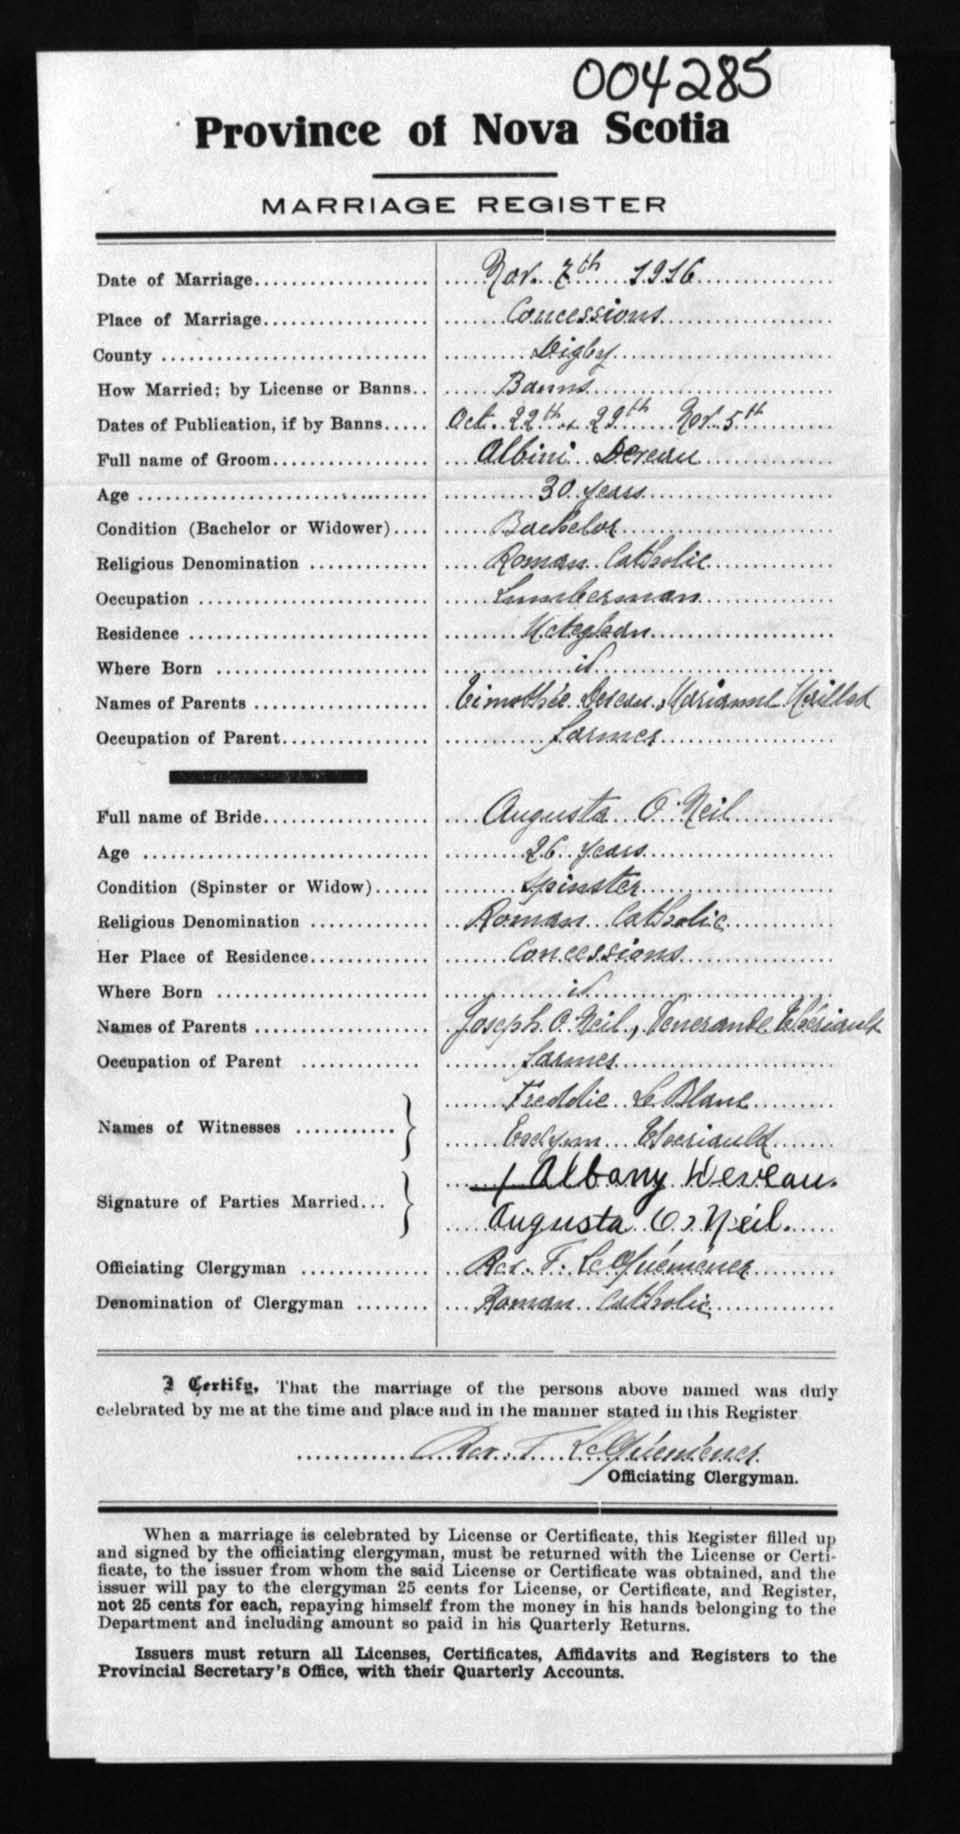 004285
Province of Nova Scotia
MARRIAGE REGISTER
Date of Marriage Nov. 7th 1916
Place of Marriage Concessions
County Digby
How Married; by License or Banns Banns
Dates of Publication, if by Banns Oct. 22th 29th Nov. 5th
Full name of Groom Albini Deveau
Age 30 years
Condition (Bachelor or Widower) Bachelor
Religious Denomination Roman Catholic
Occupation Lumberman
Residence Meteghan
Where Born id
Names of Parents Timothée Deveau, Marianne
Occupation of Parent farmer
Full name of Bride Augusta O'Neil
Age 26 years
Condition (Spinster or Widow) Spinster
Religious Denomination Roman Catholic
Her Place of Residence Concessions
Where Born id
Names of Parents Joseph O'Neil, Vénérande Thériault
Occupation of Parent farmer
Names of Witnesses Freddie LeBlanc
Thériauld
Signature of Parties Married Albany Deveau.
Augusta O'Neil.
Officiating Clergyman Rev. T. LeQuémener
Denomination of Clergyman Roman Catholic
I Certify, That the marriage of the persons above named was duly
celebrated by me at the time and place and in the manner stated in this Register
Rev. T. LeQuémener
Officiating Clergyman.
When a marriage is celebrated by License or Certificate, this Register filled up
and signed by the officiating clergyman, must be returned with the License or Certi-
ficate, to the issuer from whom the said License or Certificate was obtained, and the
issuer will pay to the clergyman 25 cents for License, or Certificate, and Register,
not 25 cents for each, repaying himself from the money in his hands belonging to the
Department and including amount so paid in his Quarterly Returns.
Issuers must return all Licenses, Certificates, Affidavits and Registers to the
Provincial Secretary's Office, with their Quarterly Accounts.